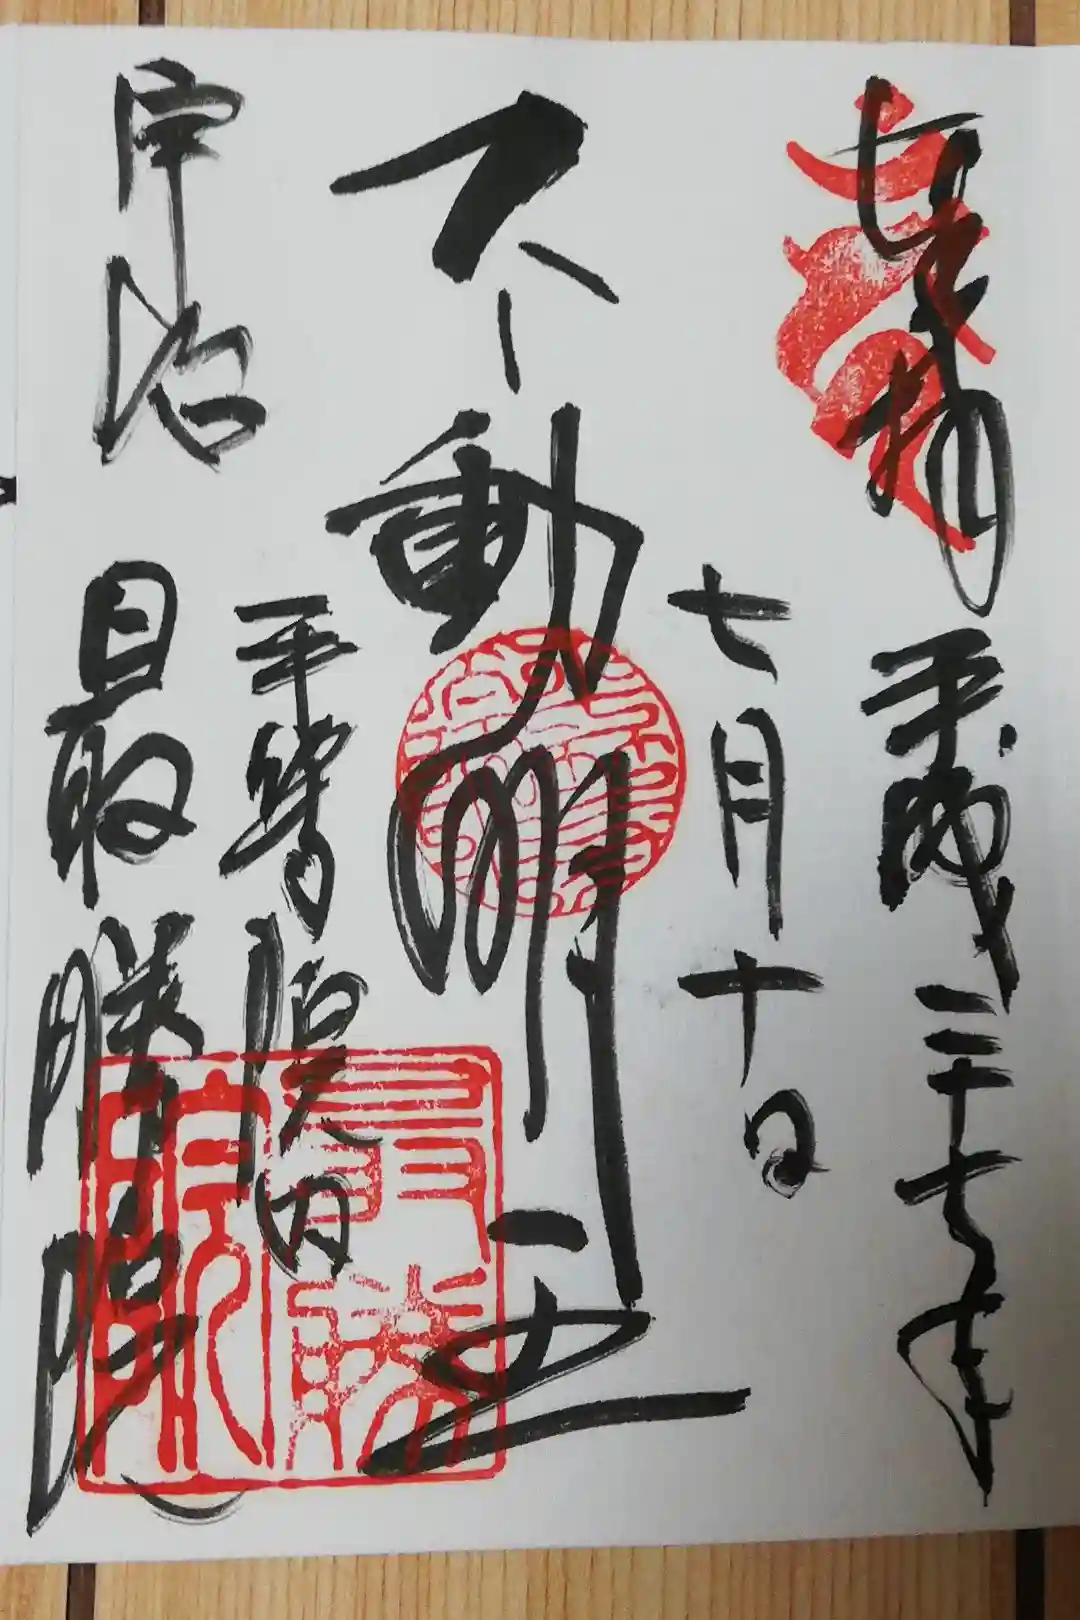 奉拝 平成二十七年
七月十日
不動明王
平等院内
宇治 最勝院
最勝院